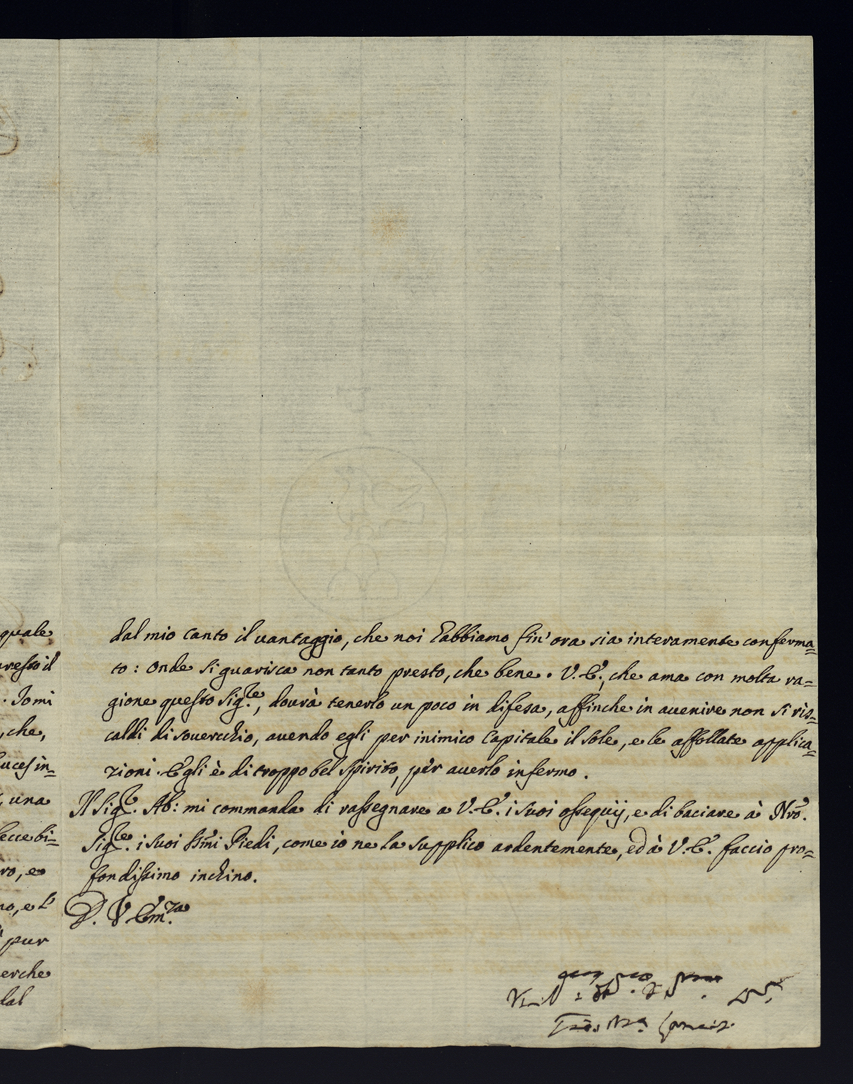 quale
presto il
. Io mi
, che,
luce, in=
, una
ecce bi=
ro, e
no, e l'
pur
erche
dal
dal mio canto il vantaggio, che noi l'abbiamo fin'ora sia interamente conferma=
to: onde si guarisca non tanto presto, che bene. V. E., che ama con molta ra=
gione questo Sig.re, dourà tenerlo un poco in difesa, affinche in auenire non si ris=
caldi di souerchio, auendo egli per inimico Capitale il Sole, e le affollate applica=
zioni. Egli è di troppo bel spirito, per auerlo infermo.
Il Sig.r Ab: mi commanda di rassegnare a V. E. i suoi ossequij, e di baciare à Nro.
Sig.re i suoi ssmi Piedi, come io ne la supplico ardentemente, ed à V. E. faccio pro=
fondissimo inchino.
D. V. Em.za